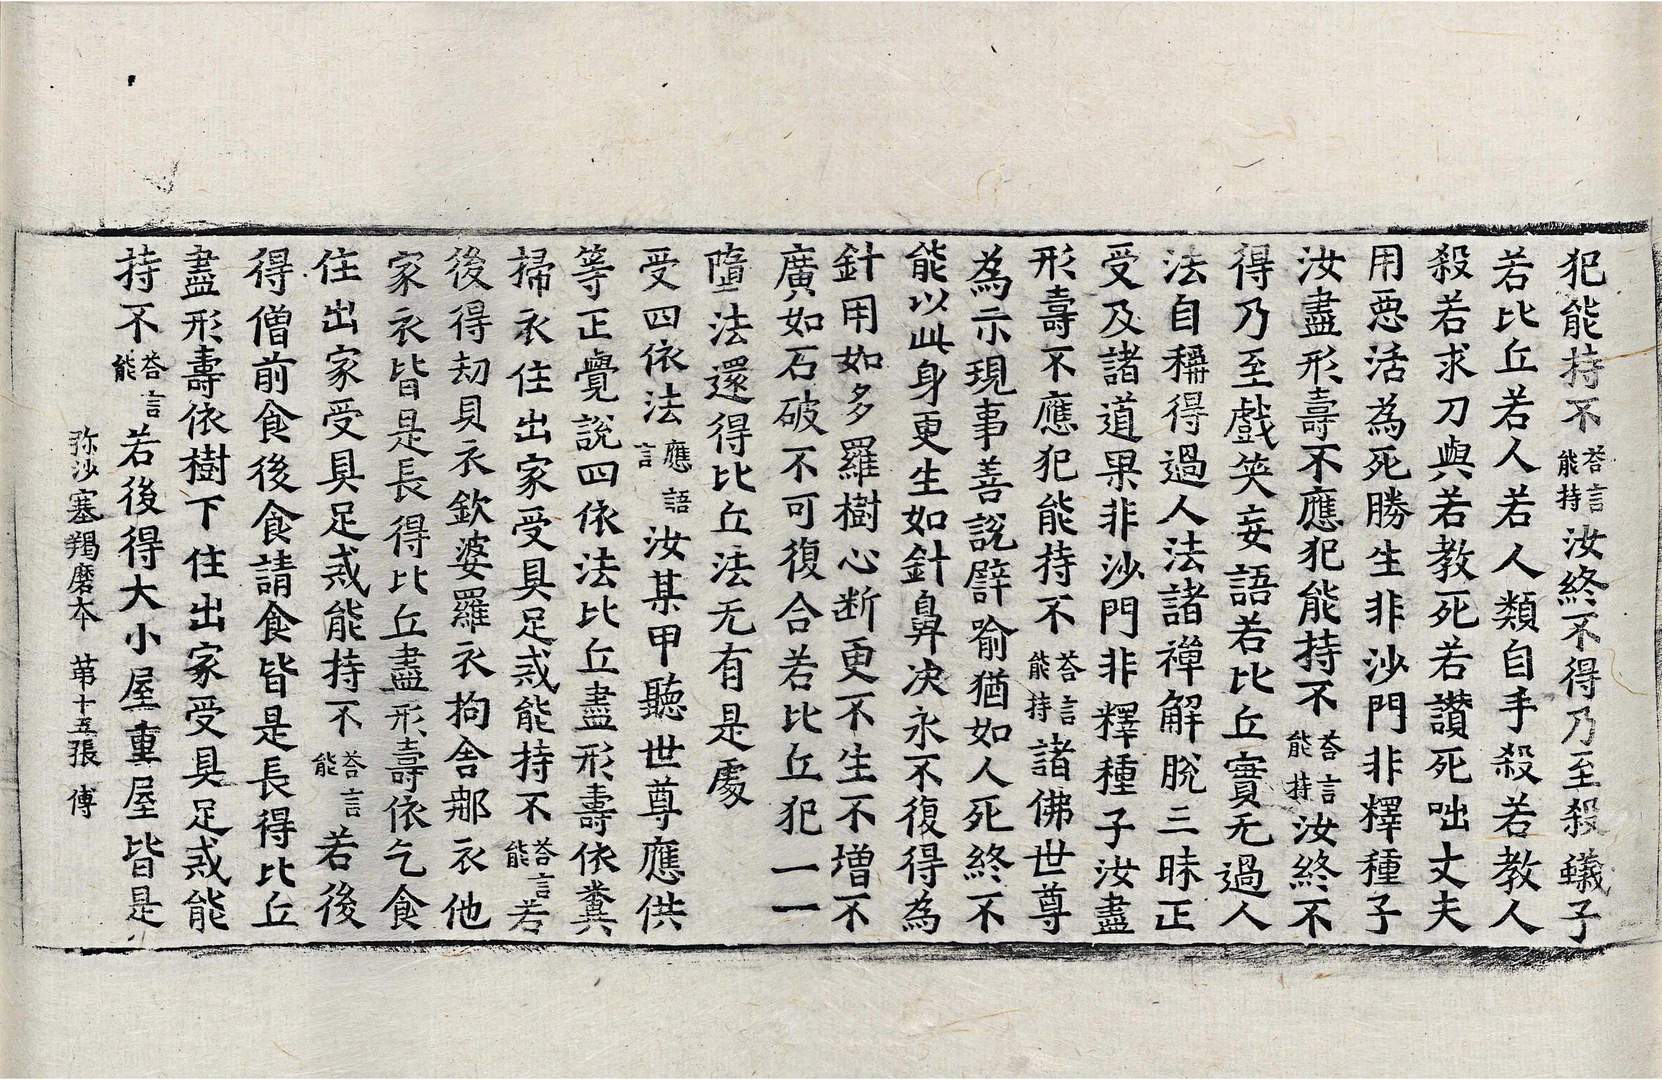 犯能持不答言能持汝終不得乃至殺蟻子
若比丘若人若人類自手殺若教人
殺若求刀與若教死若讚死咄丈夫
用惡活為死勝生非沙門非釋種子
汝盡形壽不應犯能持不答言能持汝終不
得乃至戲笑妄語若比丘實无過人
法自稱得過人法諸禪解脫三昧正
受及諸道果非沙門非釋種子汝盡
形壽不應犯能持不答言能持諸佛世尊
為示現事善說譬喻猶如人死終不
能以此身更生如針鼻决永不復得為
針用如多羅樹心断更不生不增不
廣如石破不可復合若比丘犯一一
墮法還得比丘法无有是處
受四依法應語言汝某甲聽世尊應供
等正覺說四依法比丘盡形壽依糞
掃衣住出家受具足戒能持不答言能若
後得刧貝衣欽婆羅衣拘舍郍衣他
家衣皆是長得比丘盡形壽依乞食
住出家受具足戒能持不答言能若後
得僧前食後食請食皆是長得比丘
盡形壽依樹下住出家受具足戒能
持不答言能若後得大小屋重屋皆是
弥沙塞羯磨本 苐十五張 傅